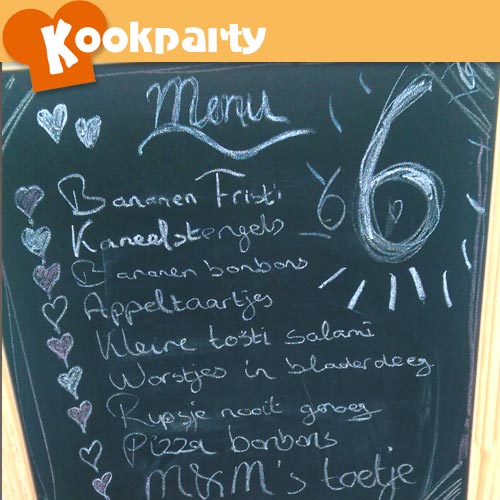 Kookparty
Menu
6
6
Bananen Fristi
Kaneelstengels
Bananen bonbons
Appeltaartjes
Kleine tosti salami
Worstjes in bladerdeeg
Rupsje nooit genoeg
Pizza bonbons
M&M's toetje